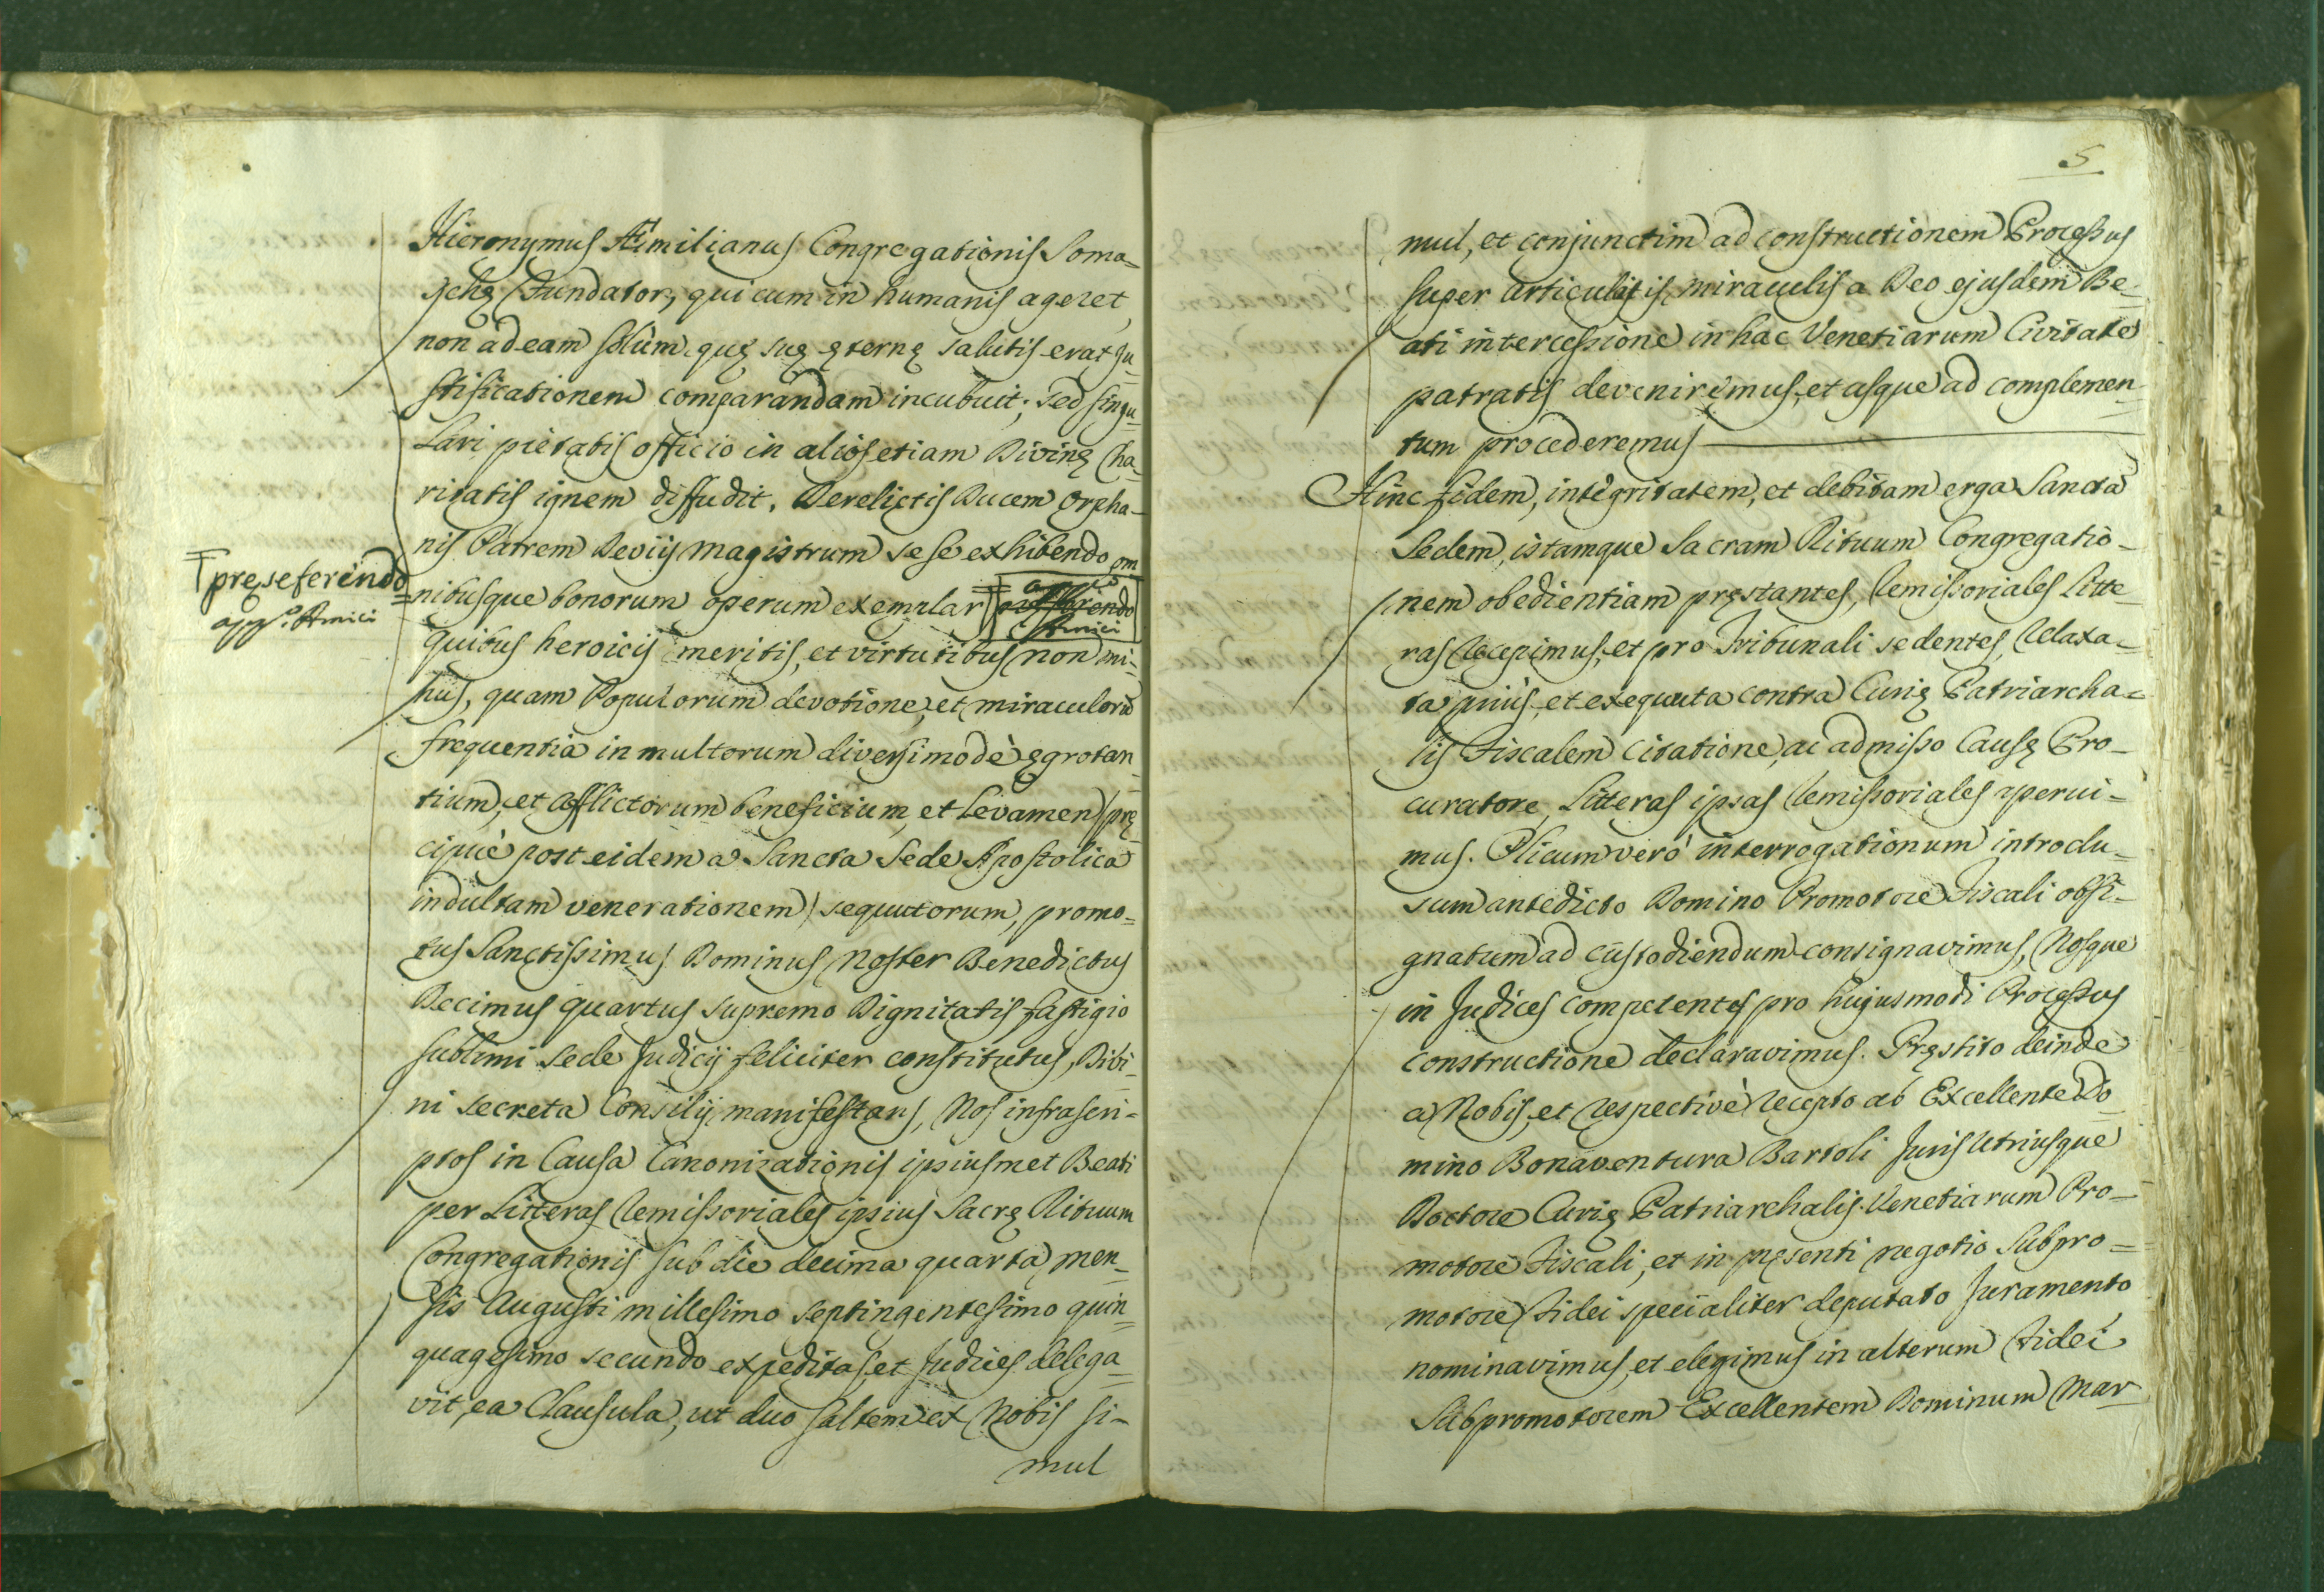 Hieronymus Æmilianus Congregationis Soma-
schę Fundator, qui cum in humanis ageret,
non ad eam solùm, quę suę ęternę salutis erat ju-
stificationem comparandam incubuit; sed singu-
lari pietatis officio in alios etiam Divinę Cha-
ritatis ignem diffudit, Derelictis Ducem Orpha-
nis Patrem Deviis Magistrum se se exhibendo, om
pręseferendo
Amici
nibusque bonorum operum exemplar
Amici
quibus heroicis meritis, et virtutibus non mi-
nus, quam Populorum devotione, et miraculorũ
frequentia in multorum diversimodè ęgrotan
tium, et afflictorum beneficium, et Levamen (prę
cipuè post eidem a Sancta Sede Apostolica
indultam venerationem) sequutorum, promo-
tus Sanctissimus Dominus Noster Benedictus
Decimus quartus supremo Dignitatis fastigio
sublimi sede Judicij feliciter constitutus, Divi-
ni secreta Consilij manifestans, Nos infrascri-
ptos in Causa Canonizationis ipsiusmet Beati
per Litteras Remissoriales ipsius Sacrę Rituum
Congregationis sub die decima quarta men-
sis Augusti millesimo septingentesimo quin
quagesimo secundo expeditas, et Judices delega-
vit, ea Clausula, ut duo saltem ex Nobis si-
mul
5
mul, et conjunctim ad constructionem Processus
super articulatis miraculis a Deo ejusdem Be-
ati intercessione in hac Venetiarum Civitate
patratis deveniremus, et usque ad complemen-
tum procederemus
Hinc fidem, integritatem, et debitam erga Sanctã
Sedem, istamque Sacram Rituum Congregatio-
nem obedientiam pręstantes, Remissoriales Litte-
ras Recepimus, et pro Tribunali sedentes, Relaxa-
ta prius, et exequuta contra Curię Patriarcha-
lis Fiscalem Citatione, ac admisso Causę Pro-
curatore, Litteras ipsas Remissoriales aperui-
mus. Plicum verò interrogationum introclu-
sum antedicto Domino Promotore Fiscali obsi-
gnatum ad custodiendum consignavimus, Nosque
in Judices competentes pro hujusmodi Processus
constructione declaravimus. Pręstito deinde
a Nobis, et respectivè recepto ab Excellente Do
mino Bonaventura Bartoli Juris Utriusque
Doctore Curię Patriarchalis Venetiarum Pro-
motore Fiscali, et in pręsenti negotio Subpro-
motore Fidei specialiter deputato Juramento
nominavimus, et elegimus in alterum Fidei
Subpromotorem Excellentem Dominum Mar